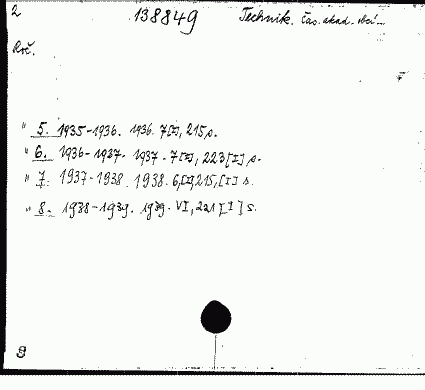 2 138849 Technik. Čas. akad. obcí...
Roč.
" 5. 1935-1936. 1936. 7[I], 215 s.
" 6. 1936-1937. 1937. 7[I], 223 [I] s.
" 7. 1937-1938. 1938. 6,[I]215,[I] s.
" 8. 1938-1939. 1939. VI, 221 [I] s.